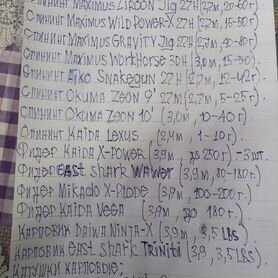 Спининг Maximus Zircon Jig 27H (2,7м, 20-60г)
Спининг Maximus Wild Power-X 27H (2,7м, 15-50г)
Спининг Maximus Gravity Jig 27H (2,7м, 40-80г)
Спининг Maximus Workhorse 30H (3,0м, 15-50г)
Спининг Aiko Snakegun (2,7м, 12-42г)
Спининг Okuma Zeon 9' (2,7м, 5-25г)
Спининг Okuma Zeon 10' (3,0м, 10-40г)
Спининг Kaida Lexus (2,4м, 1-10г)
Фидер Kaida X-Power (3,9м, до 250г) - 3шт.
Фидер East Shark Wawer (3,9м, 80-180г)
Фидер Mikado X-Plode (3,9м, 100-200г)
Фидер Kaida Vega (3,9м, до 180г)
Карповик Daiwa Ninja-X (3,9м, 3,5 LBS)
Карповик East Shark Trinity (3,9, 3,5 LBS)
Катушки карповые: